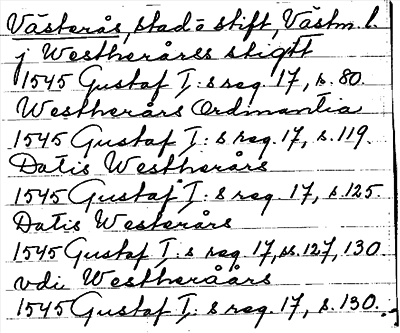 Västerås, stad o stift, Västm. l.
j Westherårss stigtt
1545 Gustaf I: s reg. 17, s. 80.
Westherårs Ordinantia
1545 Gustaf I: s reg. 17, s. 119.
Datis Westherårs
1545 Gustaf I: s reg. 17, s. 125
Datis Westerårs
1545 Gustaf I: s reg. 17, ss. 127, 130
vdi Westheråårs
1545 Gustaf I: s reg. 17, s. 130.